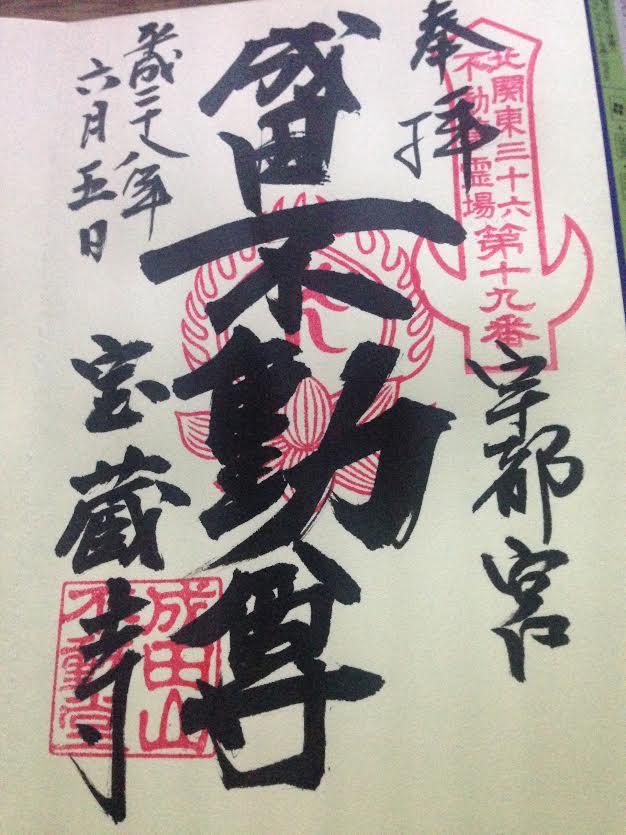 北関東三十六
不動尊霊場
第十九番
奉拝
宇都宮
成田不動尊
平成二十八年
六月五日
宝蔵寺
成田山
不動堂